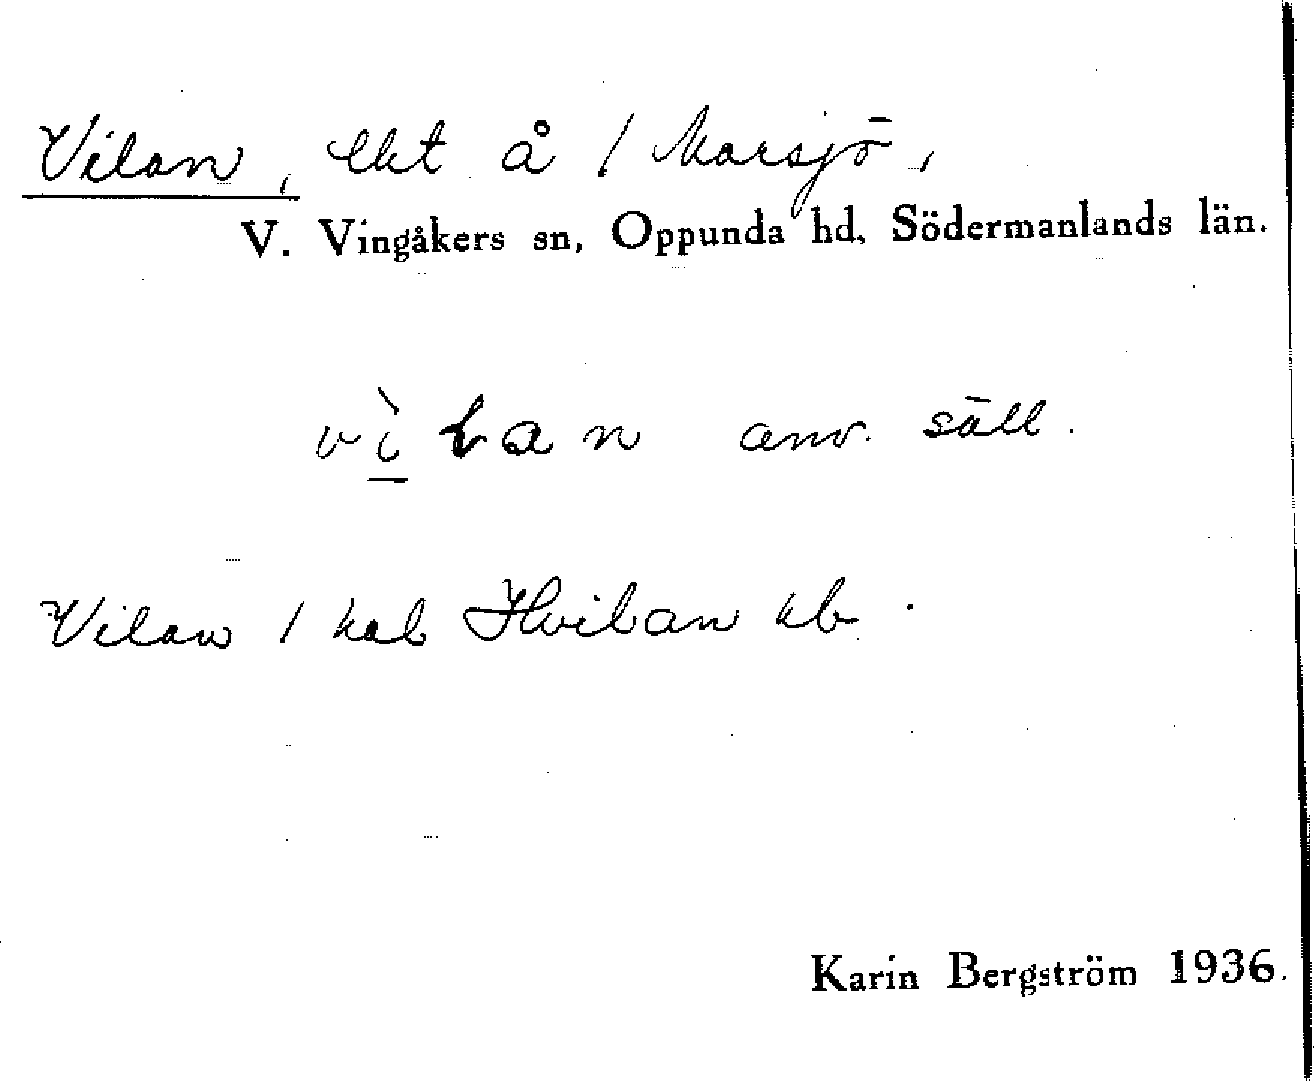 Vilan, lht å 1 Marsjö,
V. Vingåkers sn, Oppunda hd, Södermanlands län.
vìlan anv. säll.
Vilan 1 kab Hvilan kb.
Karin Bergström 1936.